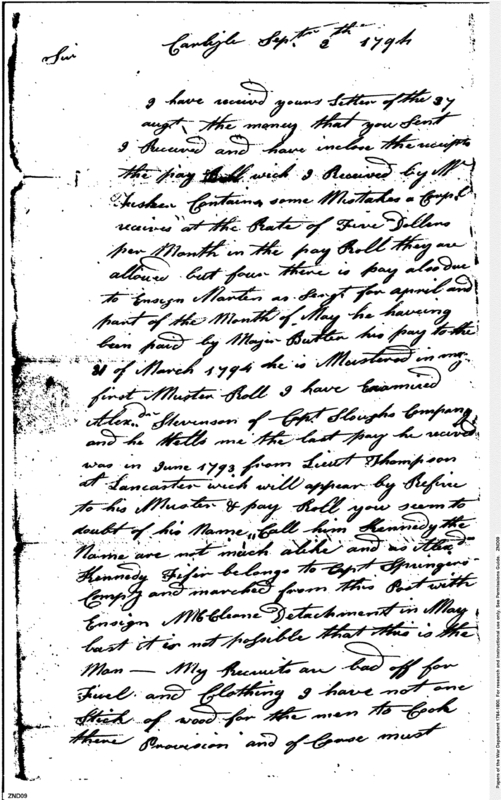 Carlyle Septr 2th 1794
Sir
I have receivd yours Letter of the 27
augt, the money that you Sent
I Received and have inclose the receipts
the pay Roll wich I Received by Mr
Tusker Contains some Mistakes a Corpl
receives at the Rate of Five Dollers
per Month in the pay Roll they are
allowed but four there is pay also due
to Ensign Marten as Sergt for april and
part of the Month of May he haveing
been paid by Major Butler his pay to the
31 of March 1794 he is Mustered in my
first Muster Roll I have Examined
Alexdr Stevenson of Capt Sloughs Company
and he tells me the last pay he receved
was in June 1793 from Lieut Thompson
at Lancaster wich will appear by Refire
to his Muster & pay Roll you seem to
doubt of his Name, Call him Kennedy the
Name are not much alike and as Alexdr
Kennedy Fifer belongs to Capt Springers
Compy and marched from this Post with
Ensign McCleane Detachment in May
last it is not possible that this is the
Man — My Recruits are bad off for
Fuel and Clothing I have not one
Stick of wood for the men to Cook
there Provision and of Corse must
ZND09
Papers of the War Department 1784-1800. For research and instructional use only. See Permissions Guide. ZND09